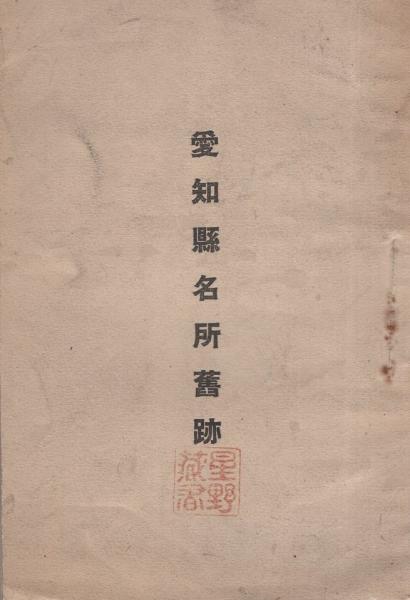 愛知縣名所舊跡
星野
藏書